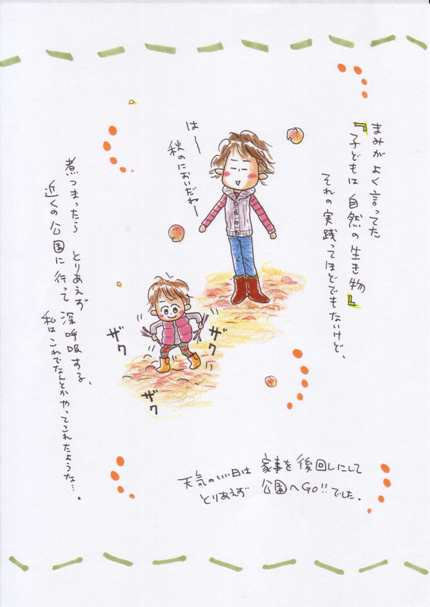 まみがよく言ってた
『子どもは自然の生き物』
それの実践ってほどでもないけど、
はーー
秋のにおいだわー
煮つまったら とりあえず
近くの公園に行って 深呼吸する。
私はこれでなんとかやってこれたような…。
ザク
ザク
ザク
天気のいい日は 家事を後回しにして
とりあえず 公園へGO!!でした。